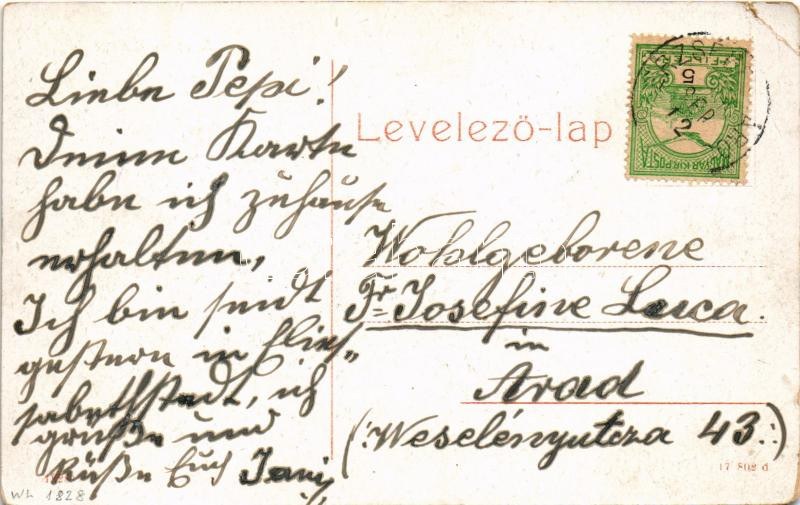 Liebe Pepi!
Deine Karte
habe ich zuhause
erhalten,
Ich bin seit
gestern in Elies-
sabethstadt, ich
grüße und
Küße Euch Jani
Levelező-lap
Wohlgeborene
Fr. Josefine Luca.
in
Arad
(:Weselényutcza 43.:)
MAGYAR KIR. POSTA
5
SEP
12
17 802 d
WL 1828